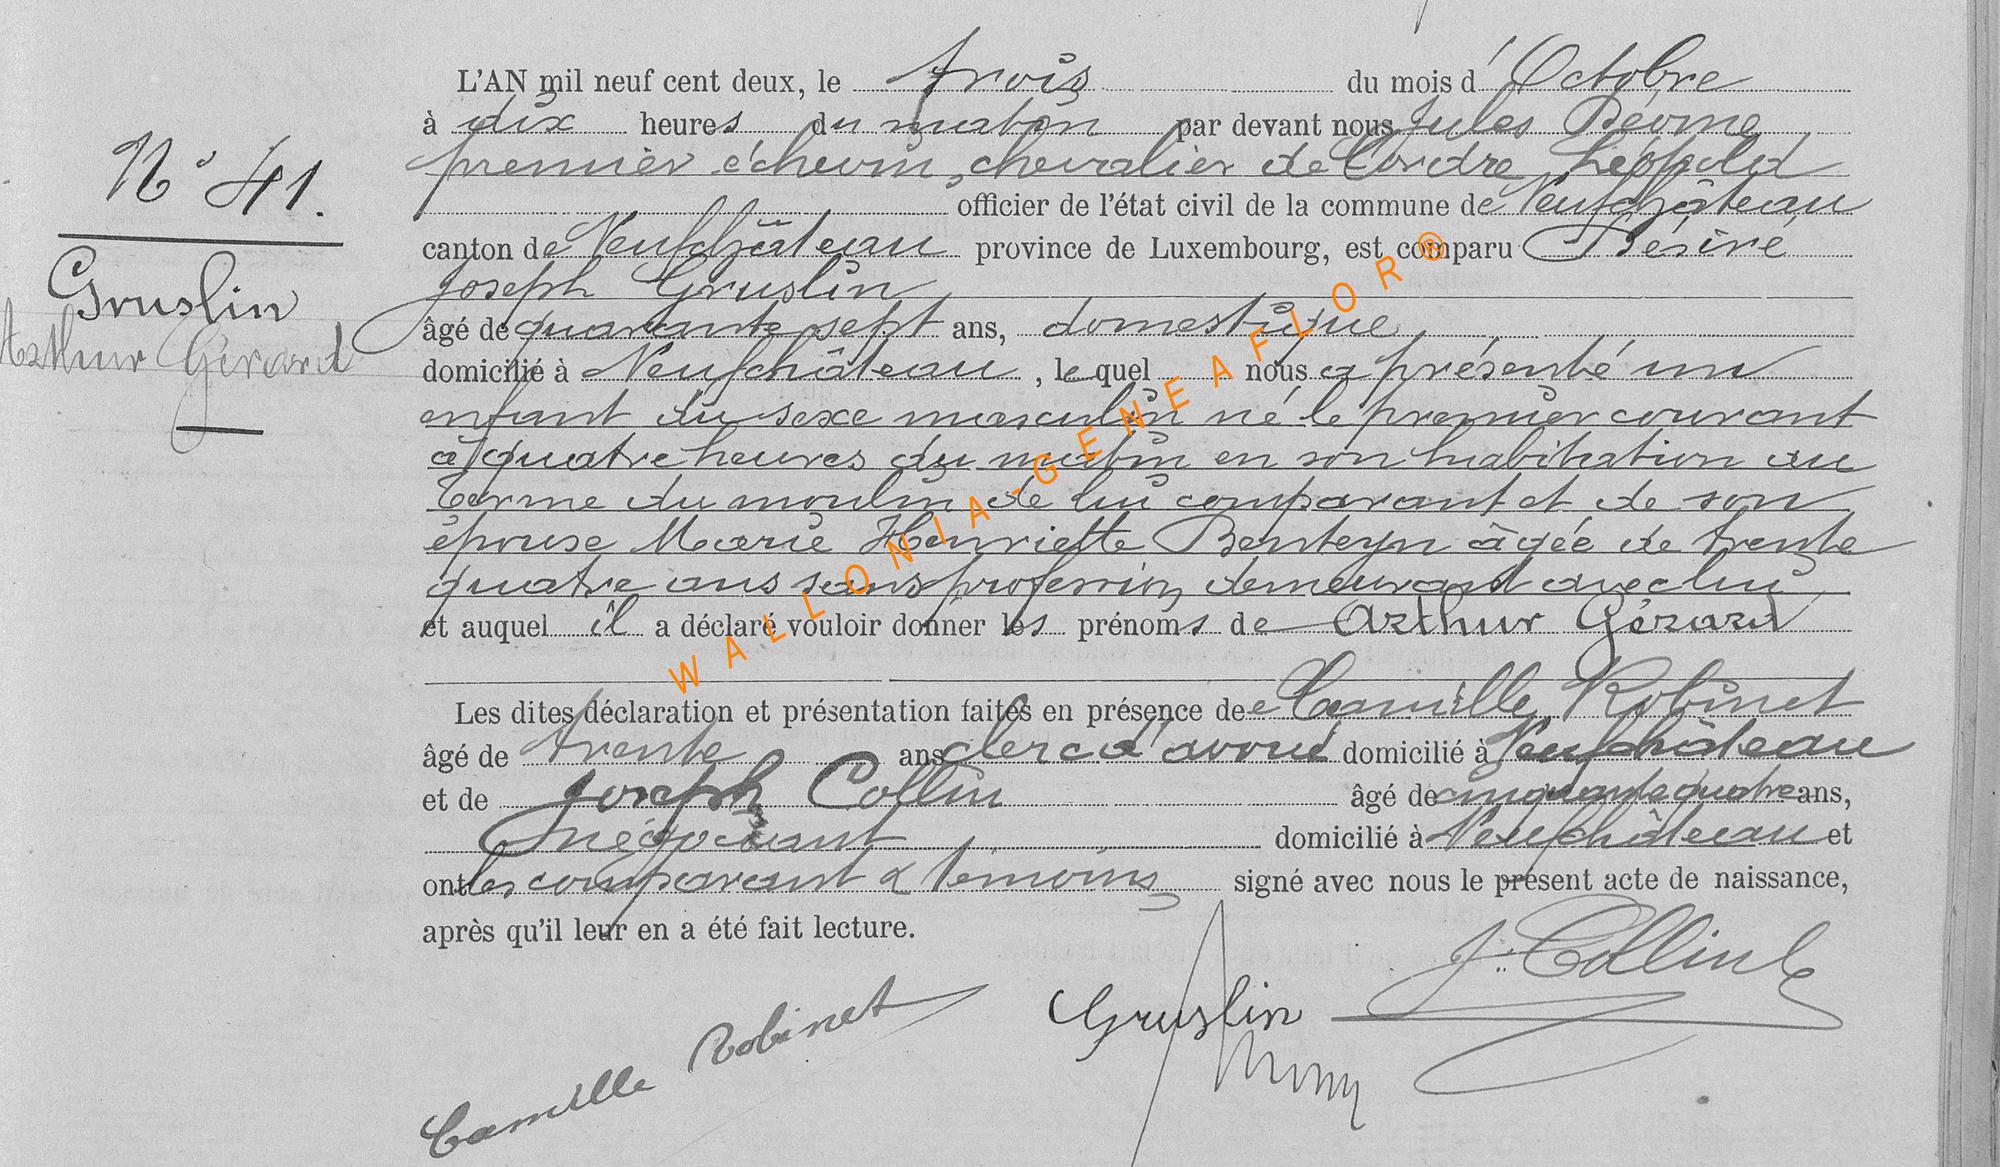 N° 41.
Gruslin
Arthur Gérard
L'AN mil neuf cent deux, le trois du mois d'Octobre
à dix heures du matin par devant nous Jules
premier échevin, chevalier de l'ordre Léopold
officier de l'état civil de la commune de Neufchâteau
canton de Neufchâteau province de Luxembourg, est comparu Désiré
Joseph Gruslin
âgé de quarante sept ans, domestique,
domicilié à Neufchâteau, lequel nous a présenté un
enfant du sexe masculin né le premier courant
à quatre heures du matin en son habitation au
Terme du moulin de lui comparant et de son
épouse Marie Henriette Benteyn âgée de trente
quatre ans sans profession, demeurant avec lui
et auquel il a déclaré vouloir donner les prénoms de Arthur Gérard
Les dites déclaration et présentation faites en présence de Camille Robinet
âgé de trente ans clerc d'avoué domicilié à Neufchâteau
et de Joseph Collin âgé de cinquante quatre ans,
négociant domicilié à Neufchâteau et
ont les comparant & témoins signé avec nous le présent acte de naissance,
après qu'il leur en a été fait lecture.
J. Collin
Gruslin
Camille Robinet
WALLONIA-GENEAFLOR®